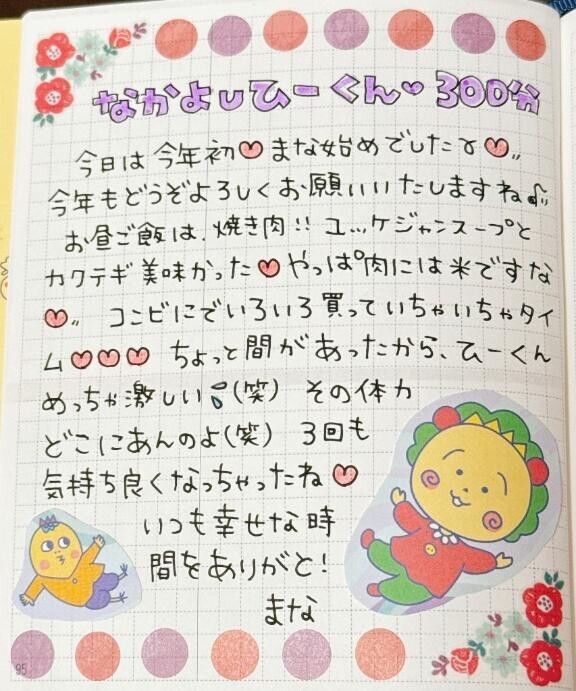 なかよしひーくん♡300分
今日は今年初♡まな始めでしたɤ♡〃
今年もどうぞよろしくお願いいたしますね♪〃
お昼ご飯は、焼き肉!! ユッケジャンスープと
カクテギ美味かった♡やっぱ肉には米ですな
♡〃 コンビニでいろいろ買っていちゃいちゃタイ
ム♡♡♡ ちょっと間があったから、ひーくん
めっちゃ激しい(笑) その体力
どこにあんのよ(笑) 3回も
気持ち良くなっちゃったね♡
いつも幸せな時
間をありがと!
まな
95